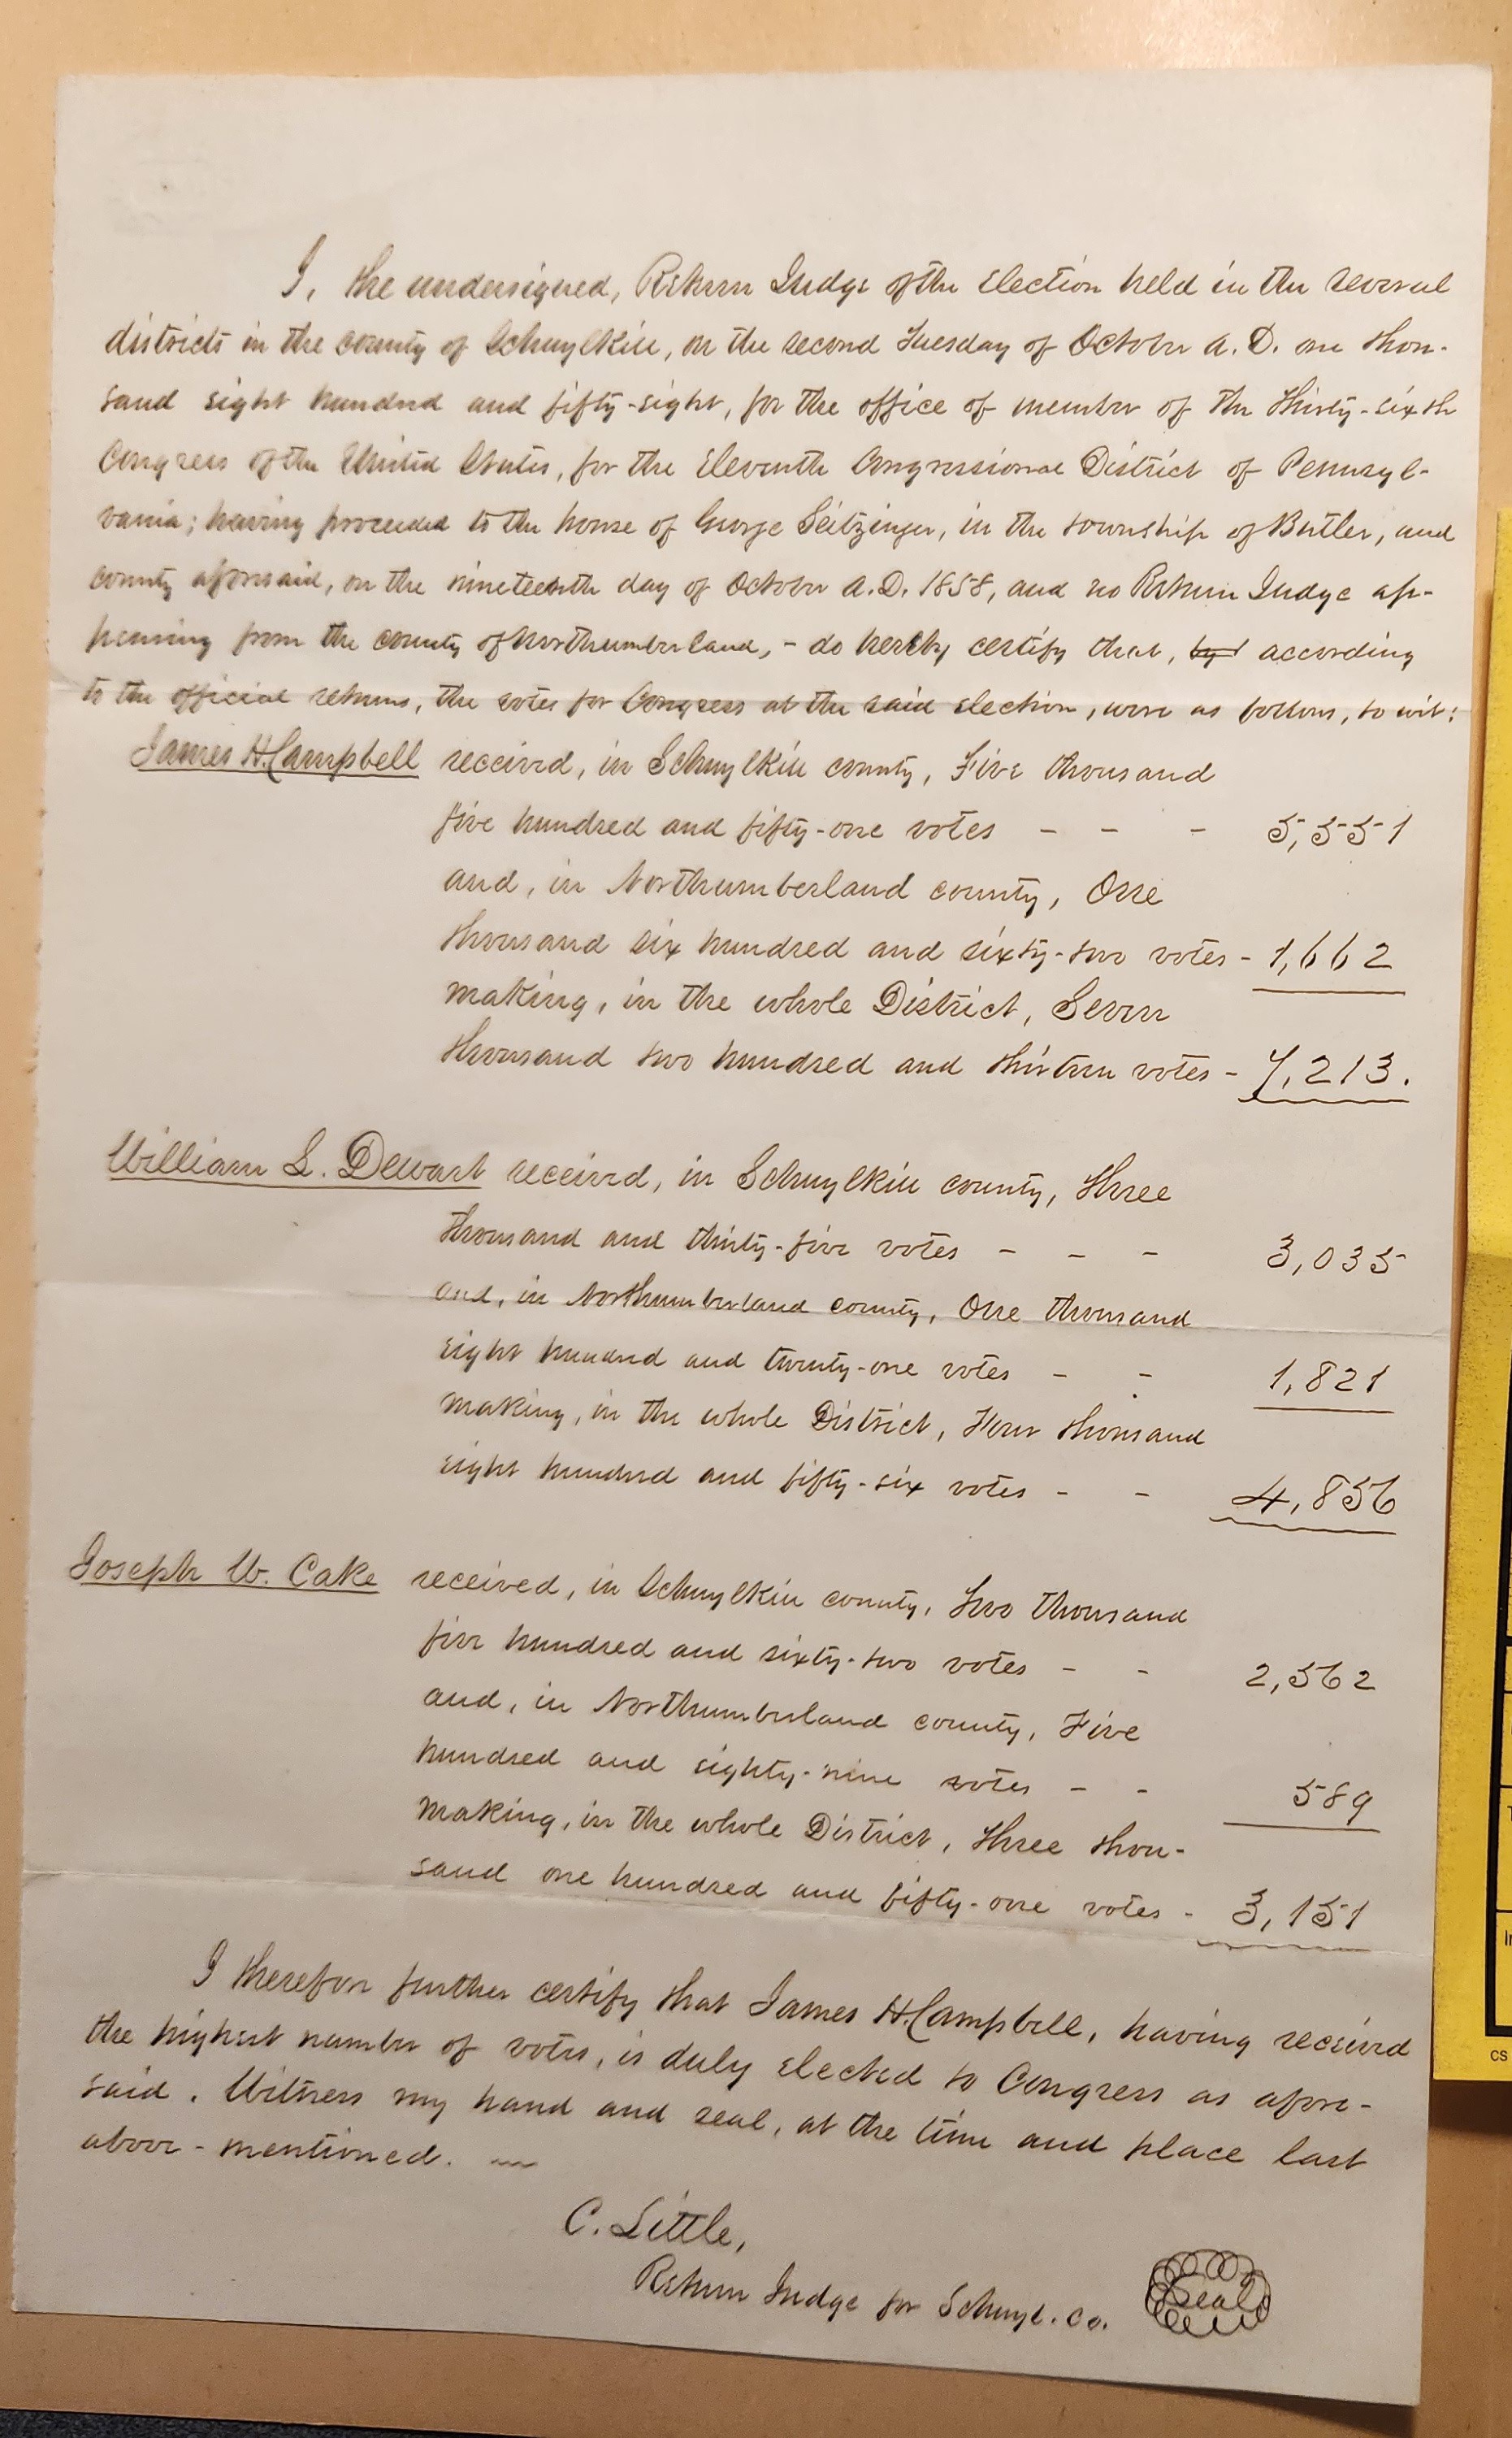 I, the undersigned, Return Judge of the Election held in the several
districts in the county of Schuylkill, on the second Tuesday of October A.D. one thou-
sand eight hundred and fifty-eight, for the office of member of the Thirty-sixth
Congress of the United States, for the Eleventh Congressional District of Pennsyl-
vania; having proceeded to the house of George Seitzinger, in the township of Butler, and
county aforesaid, on the nineteenth day of October A.D. 1858, and no Return Judge ap-
pearing from the county of Northumberland, - do hereby certify that, according
to the official returns, the votes for Congress at the said election, were as follows, to wit:
James H. Campbell received, in Schuylkill county, Five thousand
five hundred and fifty-one votes - - - 5,551
and, in Northumberland county, One
thousand six hundred and sixty-two votes - 1,662
making, in the whole District, Seven
thousand two hundred and thirteen votes - 7,213.
William L. Dewart received, in Schuylkill county, Three
thousand and thirty-five votes - - - 3,035
and, in Northumberland county, One thousand
eight hundred and twenty-one votes - - 1,821
making, in the whole District, Four thousand
eight hundred and fifty-six votes - - 4,856
Joseph W. Cake received, in Schuylkill county, Two thousand
five hundred and sixty-two votes - - 2,562
and, in Northumberland county, Five
hundred and eighty-nine votes - - 589
making, in the whole District, Three thou-
sand one hundred and fifty-one votes - 3,151
I therefore further certify that James H. Campbell, having received
the highest number of votes, is duly elected to Congress as afore-
said. Witness my hand and seal, at the time and place last
above-mentioned.
C. Little,
Return Judge for Schuyl. Co.
Seal
CS